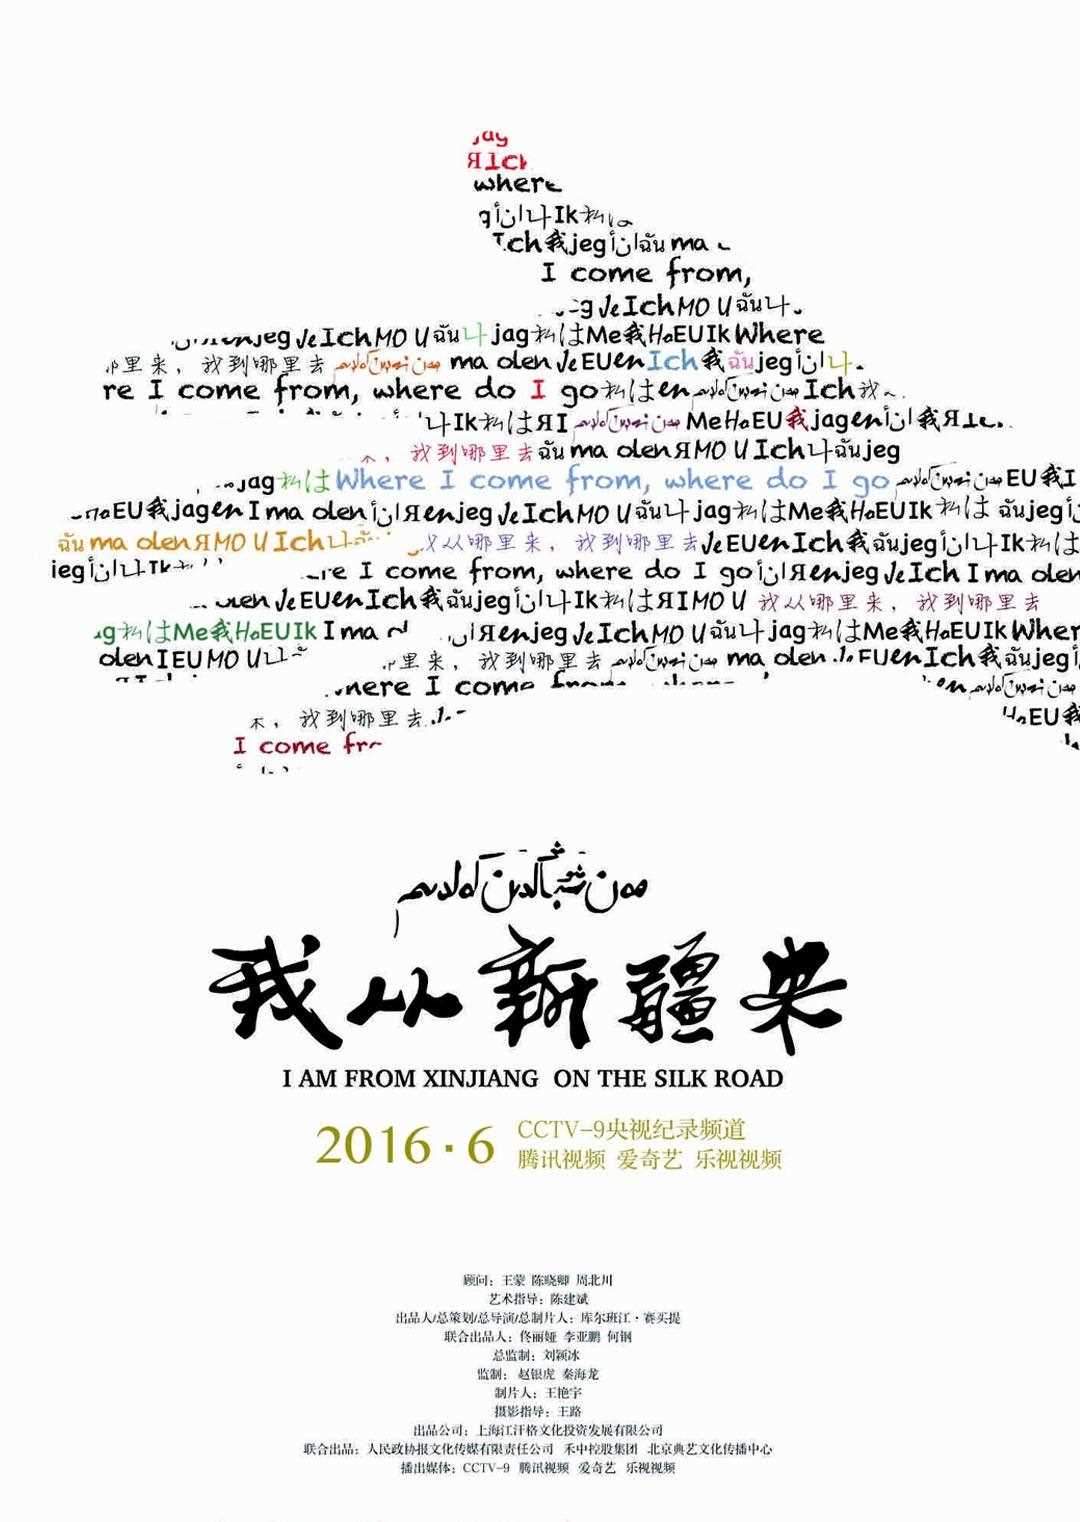 jag
ЯIch
where
Ik私は
Ich我jegأناฉันma
I come from,
JeIchMO Uฉัน나
jegJeIchMO Uฉัน나jag私はMe我HaEUIkWhere
哪里来，我到哪里去 ma olenJeEUenIch我ฉันjegأنا나
re I come from, where do I go私はen Ich我
나Ik私はЯI MeHaEU我jagenأنا我Я
我到哪里去ฉันma olenЯMO U Ich나ฉันjeg
jag私はWhere I come from, where do I go EU我I
EU我jagenI ma olenأناЯenjegJeIchMO Uฉัน나jag私はMe我HaEUIk私は ฉันjeg
ฉันma olenЯMO U Ich나 我从哪里来，我到哪里去JeEUenIch我ฉันjegأنا나Ik私は
jegأنا나Ik re I come from, where do I goأناЯenjegJeIchI ma olen
olenJeEUenIch我ฉันjegأنا나Ik私はЯIMO U 我从哪里来，我到哪里去
g私はMe我HaEUIkI ma أناЯenjegJeIchMO Uฉัน나jag私はMe我HaEUIkWher
olenIEUMO U나 哪里来，我到哪里去 ma olen EUenIch我ฉันjeg
where I come from
来，我到哪里去 HaEU我
I come fr
مەن شىنجاڭدىن كەلدىم
我从新疆来
I AM FROM XINJIANG ON THE SILK ROAD
2016·6 CCTV-9央视纪录频道
腾讯视频 爱奇艺 乐视视频
顾问：王蒙 陈晓卿 周北川
艺术指导：陈建斌
出品人/总策划/总导演/总制片人：库尔班江·赛买提
联合出品人：佟丽娅 李亚鹏 何钢
总监制：刘颖冰
监制：赵银虎 秦海龙
制片人：王艳宇
摄影指导：王路
出品公司：上海江汗格文化投资发展有限公司
联合出品：人民政协报文化传媒有限责任公司 禾中控股集团 北京典艺文化传播中心
播出媒体：CCTV-9 腾讯视频 爱奇艺 乐视视频